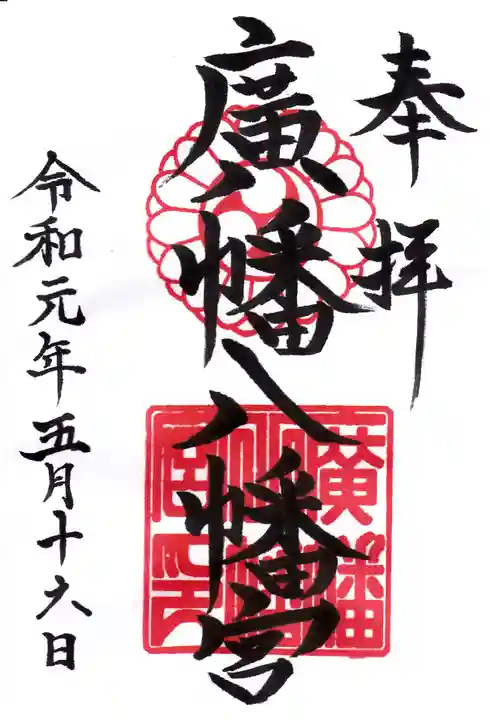 奉拝
廣幡八幡宮
令和元年五月十六日
廣幡